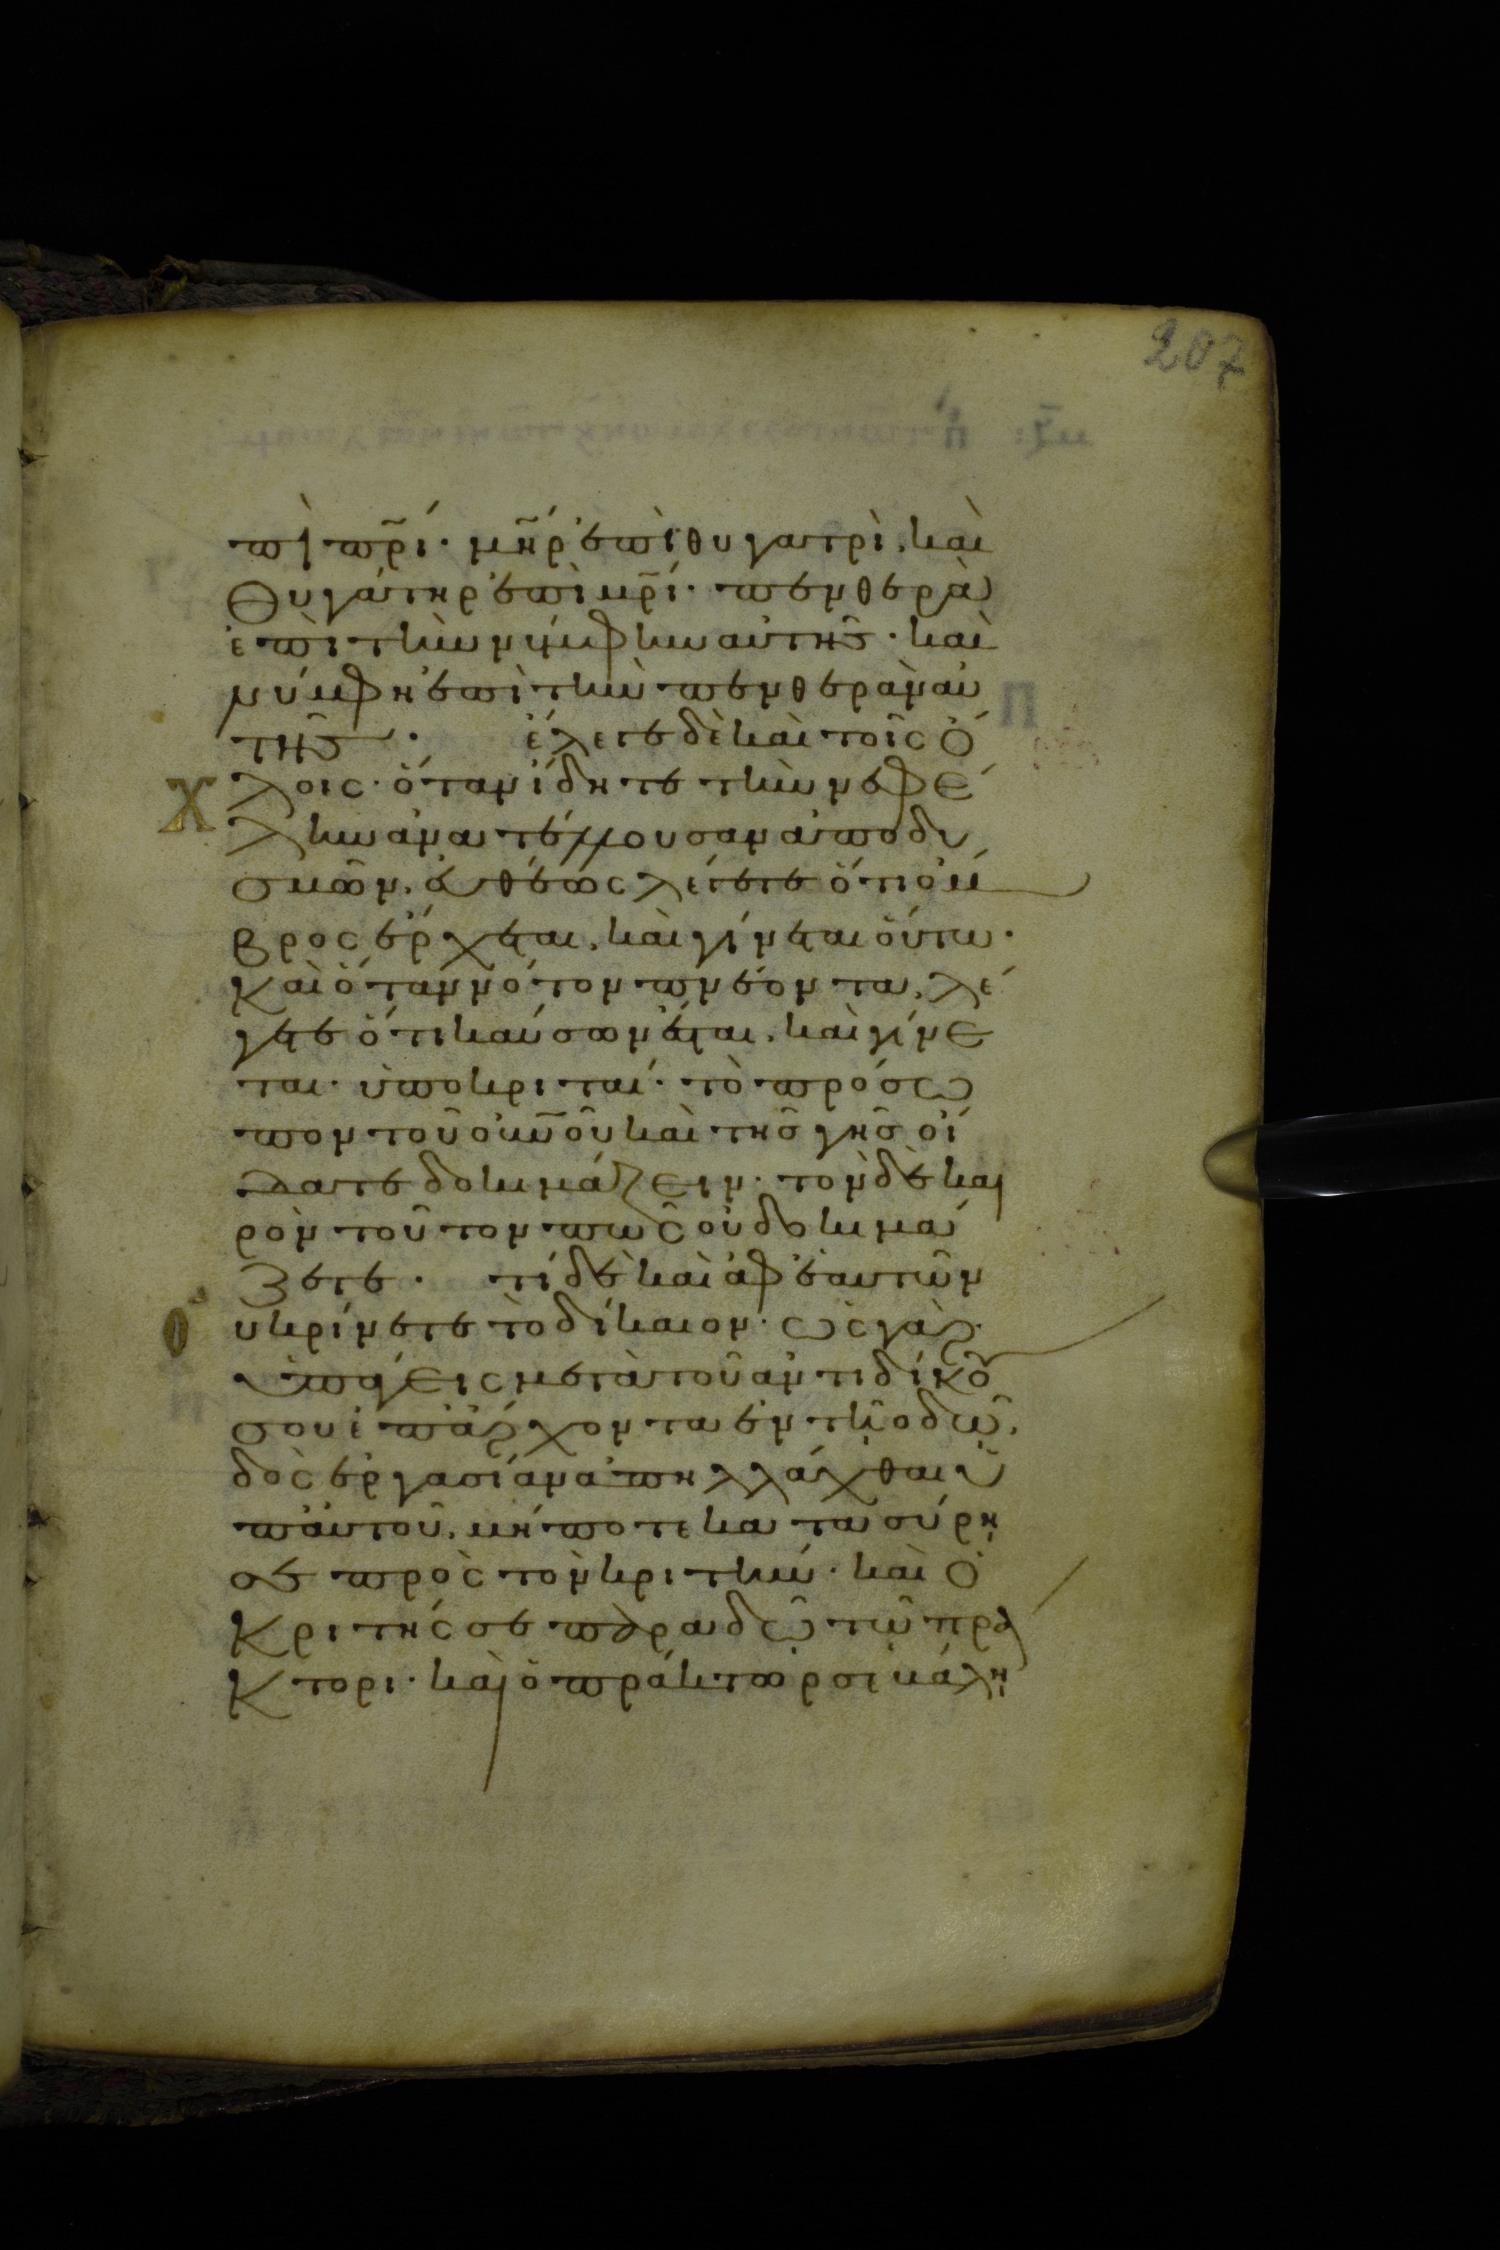 207
πὶ πρ̅ί· μη̅ρ ἐπὶ θυγατρὶ, καὶ
Θυγάτηρ ἐπὶ μρ̅ί· πενθερὰ
ἐπὶ τὴν νύμφην αὐτῆς· καὶ
νύμφη ἐπὶ τὴν πενθερὰν αὐ
τῆς· ἔλεγε δὲ καὶ τοῖς ὄ
χλοις· ὅταν ἴδητε τὴν νεφέ
λην ἀνατέλλουσαν ἀπὸ δυ
σμῶν, εὐθέως λέγετε ὅτι ὄμ
βρος ἔρχεται, καὶ γίνεται οὕτω·
Καὶ ὅταν νότον πνέοντα, λέ
γετε ὅτι καύσων ἔσται, καὶ γίνε
ται· ὑποκριταί· τὸ πρόσω
πον τοῦ οὐν̅οῦ καὶ τῆς γῆς οἴ
δατε δοκιμάζειν· τὸν δὲ και
ρὸν τοῦτον πῶς οὐ δοκιμά
ζετε· τί δὲ καὶ ἀφ' ἑαυτῶν
οὐ κρίνετε τὸ δίκαιον· ὡς γὰρ
ὑπάγεις μετὰ τοῦ ἀντιδίκου
σου ἐπ' ἄρχοντα ἐν τῇ ὁδῶ,
δὸς ἐργασίαν ἀπηλλάχθαι ἀ
π' αὐτοῦ, μήποτε κατασύρη
σε πρὸς τὸν κριτήν· καὶ ὁ
Κριτής σε παραδῶ τῶ πρά
Κτορι· καὶ ὁ πράκτωρ σε βάλῃ